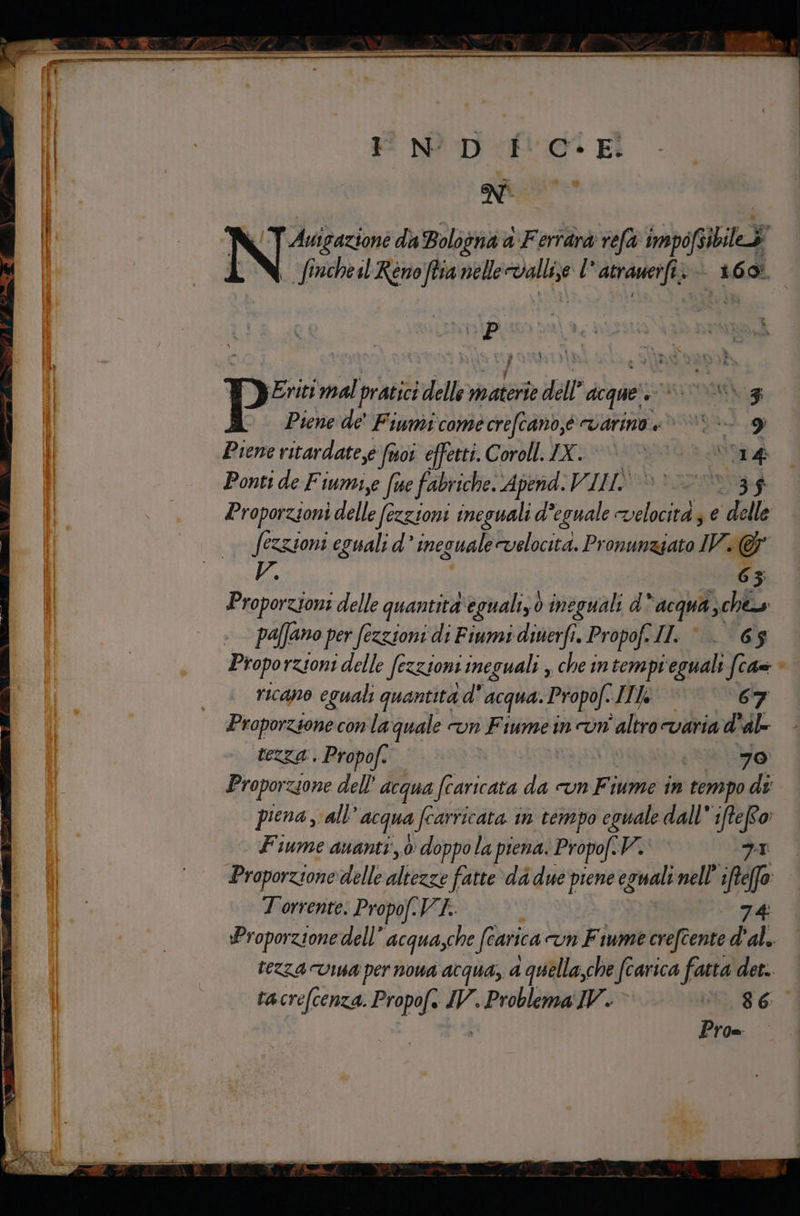 INDICE.
N
NAuigazione da Bologna à Ferrara resa impossibile
finche il Reno stia nelle vallise l'atrauersi. 160.
P
PEriti mal pratici delle materie dell' acque. 3
Piene de' Fiumi come crescano,e varino. 9
Piene ritardate,e suoi effetti. Coroll. IX. 14
Ponti de Fiumi,e sue fabriche. Apend. VIII. 35
Proporzioni delle sezzioni ineguali d'eguale velocità, e delle
sezzioni eguali d' ineguale velocità. Pronunziato IV. &
V. 63
Proporzioni delle quantità eguali, ò ineguali d'acqua, che
passano per sezzioni di Fiumi diuersi. Propos. II. 65
Proporzioni delle sezzioni ineguali, che in tempi eguali sca-
ricano eguali quantità d' acqua. Propos. III. 67
Proporzione con la quale vn Fiume in vn' altro varia d'al-
tezza. Propos. 70
Proporzione dell' acqua scaricata da vn Fiume in tempo di
piena, all' acqua scarricata in tempo eguale dall' istesso
Fiume auanti, ò doppo la piena. Propos. V. 71
Proporzione delle altezze fatte da due piene eguali nell' istesso
Torrente. Propos. VI. 74
Proporzione dell' acqua,che scarica vn Fiume crescente d'al.
tezza viua per noua acqua, à quella,che scarica fatta det.
ta crescenza. Propos. IV. Problema IV. 86
Pro-